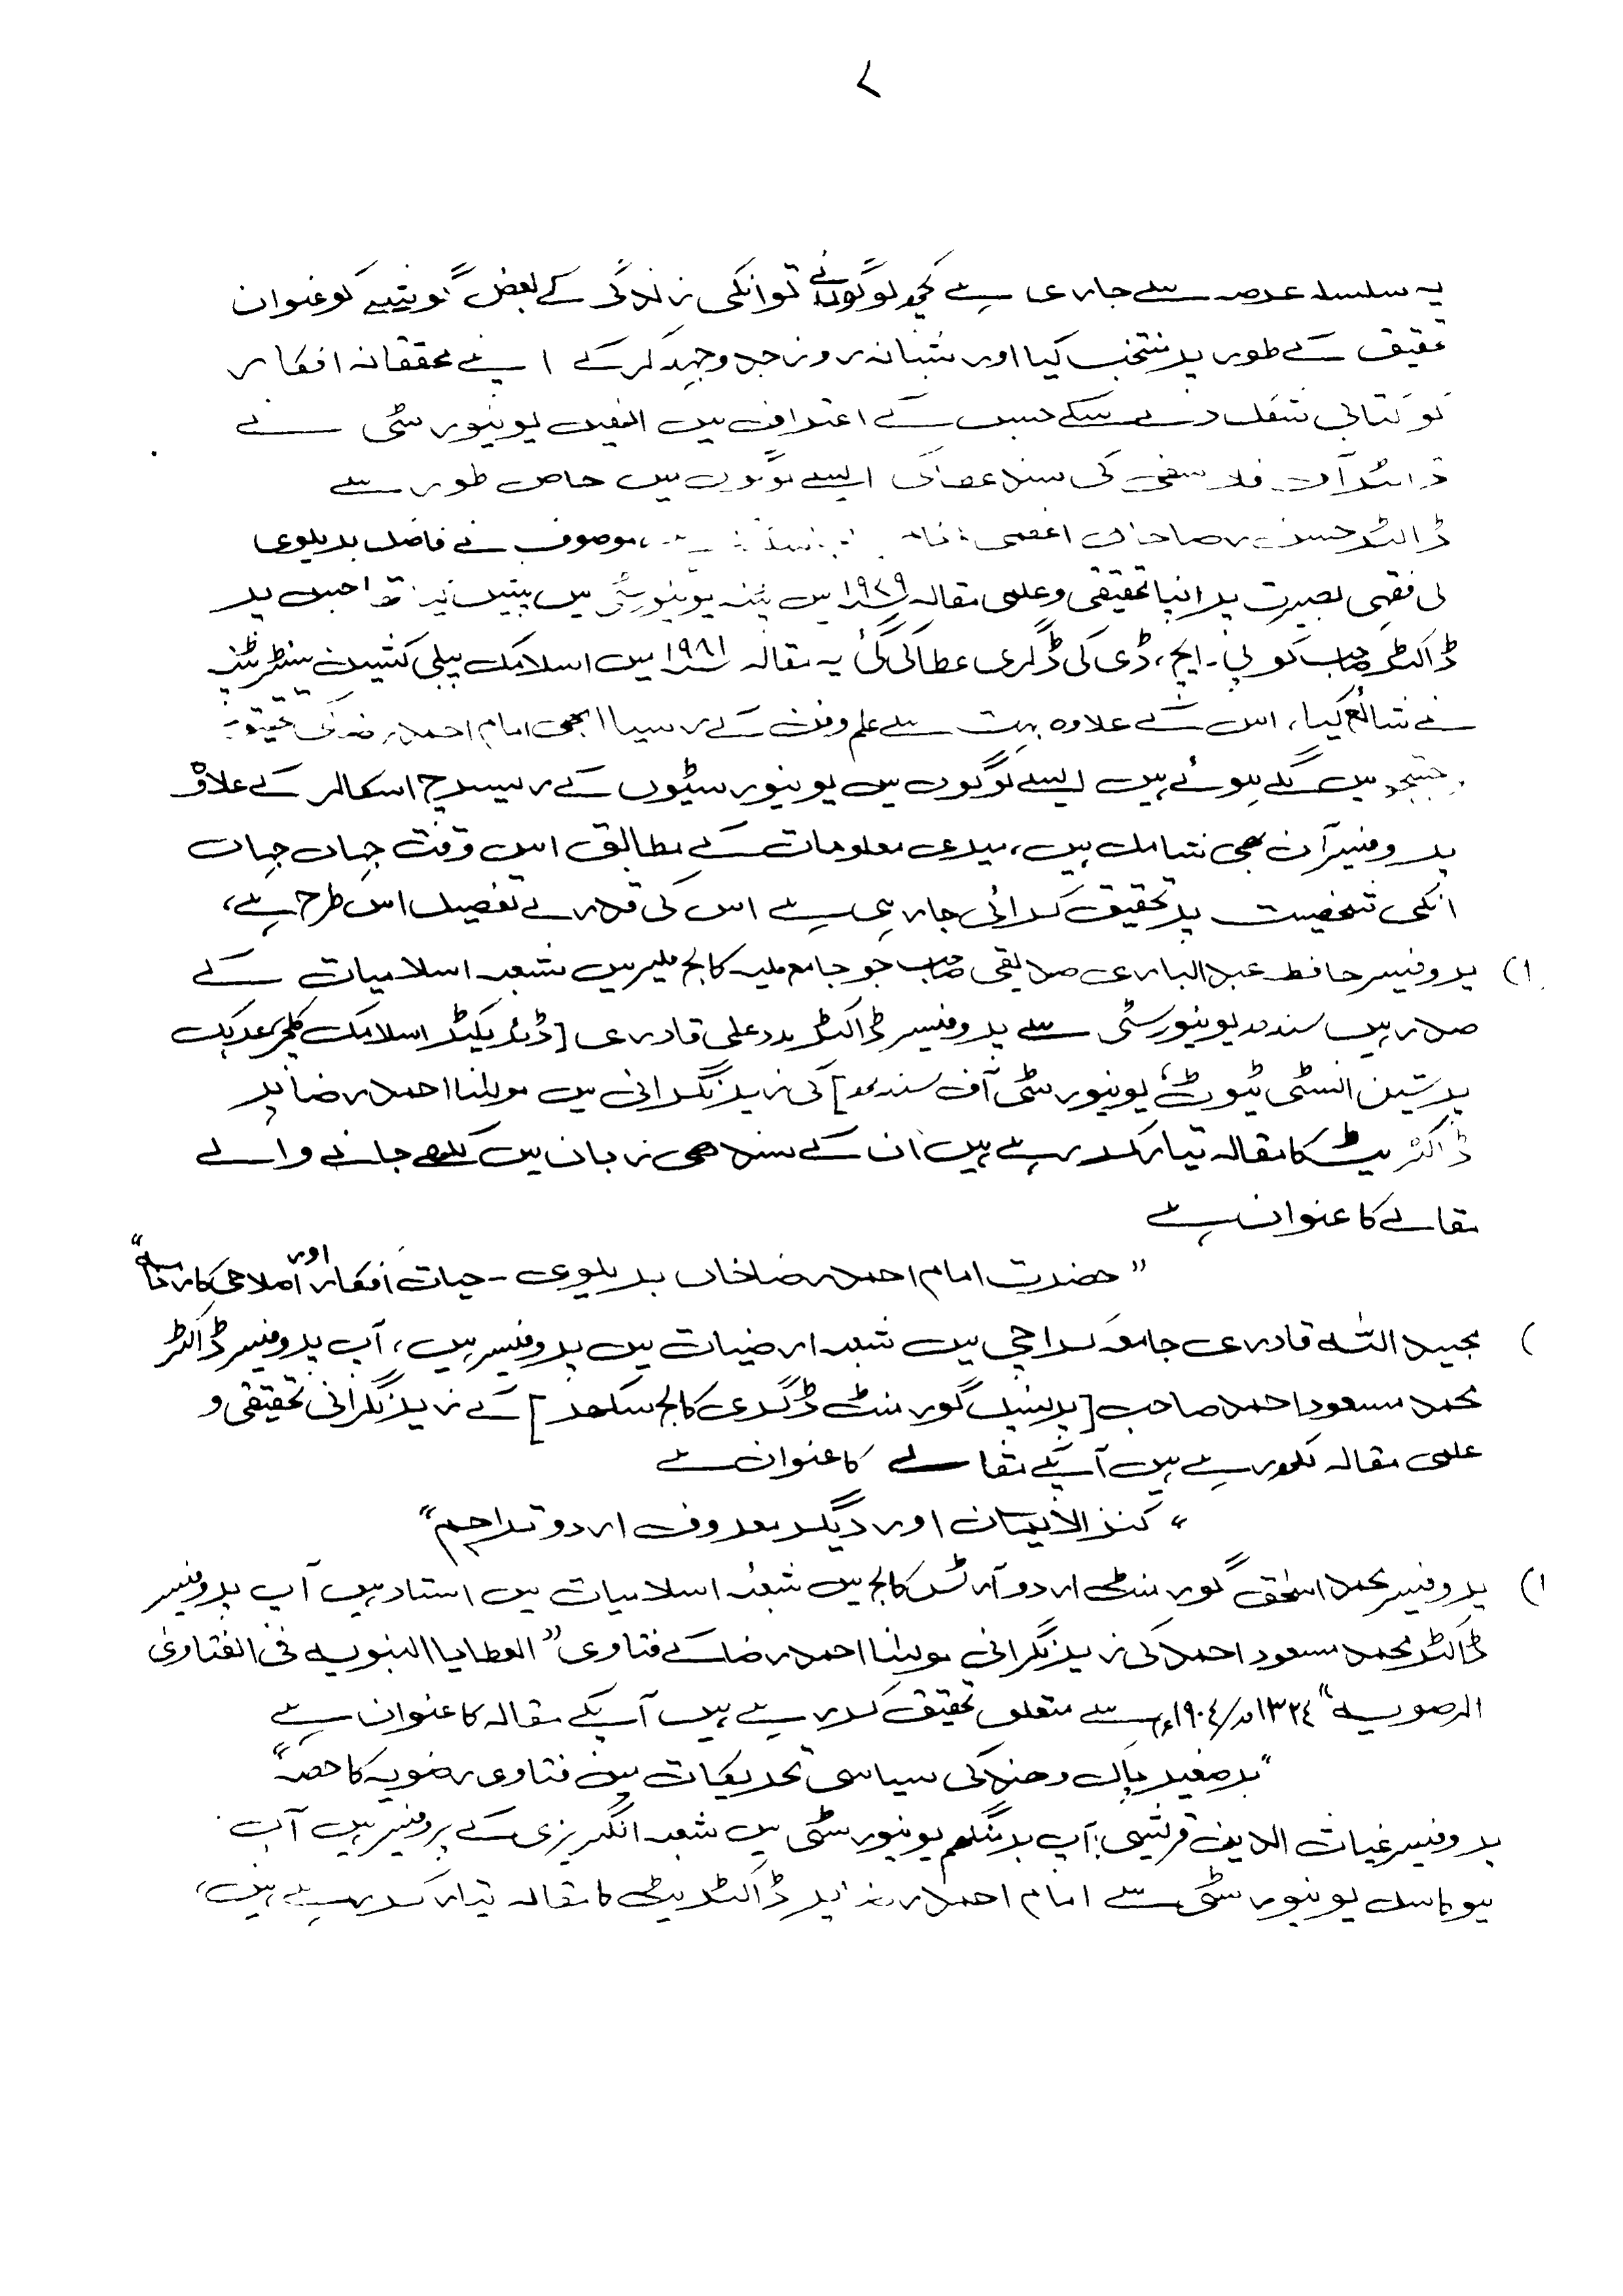 ۷
یہ سلسلہ عرصہ سے جاری ہے کچھ لوگوں نے تو انکی زندگی کے بعض گوشے کو عنوان
تحقیق کے طور پر منتخب کیا اور شبانہ روز جدوجہد کر کے اپنے محققانہ افکار
کو کتابی شکل دے سکے جس کے اعتراف میں انھیں یونیورسٹی نے
ڈاکٹر آف فلاسفی کی سند عطا کی ایسے لوگوں میں خاص طور سے
ڈاکٹر حسن رضا خاں اعظمی موصوف نے فاضل بریلوی
کی فقہی بصیرت پر اپنا تحقیقی و علمی مقالہ ۱۹۷۹ میں پٹنہ یونیورسٹی میں پیش کیا تھا جس پر
ڈاکٹر صاحب کو پی۔ایچ،ڈی کی ڈگری عطا کی گئی یہ مقالہ ۱۹۸۱ میں اسلامک پبلی کیشن سینٹر پٹنہ
نے شائع کیا، اس کے علاوہ بہت سے علم و فن کے رسیا ابھی امام احمد رضا کی
جستجو میں لگے ہوئے ہیں ایسے لوگوں میں یونیورسٹیوں کے ریسرچ اسکالر کے علاوہ
پروفیسران بھی شامل ہیں، میری معلومات کے مطابق اس وقت جہاں جہاں
انکی شخصیت پر تحقیق کرائی جا رہی ہے اس کی قدرے تفصیل اس طرح ہے،
۱) پروفیسر حافظ عبدالباری صدیقی صاحب جو جامع ملیہ کالج ملیر میں شعبہ اسلامیات کے
صدر ہیں سندھ یونیورسٹی سے پروفیسر ڈاکٹر مدد علی قادری [ڈائریکٹر اسلامک کلچر عربک
پرشین انسٹی ٹیوٹ، یونیورسٹی آف سندھ] کی زیر نگرانی میں مولینا احمد رضا پر
ڈاکٹریٹ کا مقالہ تیار کر رہے ہیں ان کے سندھی زبان میں لکھے جانے والے
مقالے کا عنوان ہے
”حضرت امام احمد رضا خاں بریلوی - حیات افکار اور اصلاحی کارنامہ“
) مجید اللہ قادری جامعہ کراچی میں شعبہ ارضیات میں پروفیسر ہیں، آپ پروفیسر ڈاکٹر
محمد مسعود احمد صاحب [پرنسپل گورمنٹ ڈگری کالج سکھر] کے زیر نگرانی تحقیقی و
علمی مقالہ لکھ رہے ہیں آپکے مقالے کا عنوان ہے
”کنز الایمان اور دیگر معروف اردو تراجم“
۱) پروفیسر محمد اسحٰق گورمنٹ اردو آرٹس کالج میں شعبۂ اسلامیات میں استاد ہیں آپ پروفیسر
ڈاکٹر محمد مسعود احمد کی زیر نگرانی مولینا احمد رضا کے فتاوی ”العطایا النبویہ فی الفتاوی
الرضویہ“ ۱۳۲۴ھ/۱۹۰۴ء سے متعلق تحقیق کر رہے ہیں آپکے مقالہ کا عنوان ہے
”برصغیر پاک و ہند کی سیاسی تحریکات میں فتاوی رضویہ کا حصہ“
پروفیسر غیاث الدین قریشی: آپ برمنگھم یونیورسٹی میں شعبہ انگریزی کے پروفیسر ہیں آپ
نیو کاسل یونیورسٹی سے امام احمد رضا پر ڈاکٹریٹ کا مقالہ تیار کر رہے ہیں،